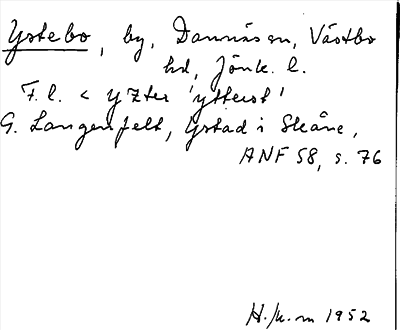 Ystebo, by, Dannäs sn, Västbo
hd, Jönk. l.
F.l. < yzter 'ytterst'
G. Langenfelt, Ystad i Skåne,
ANF 58, s. 76
1952